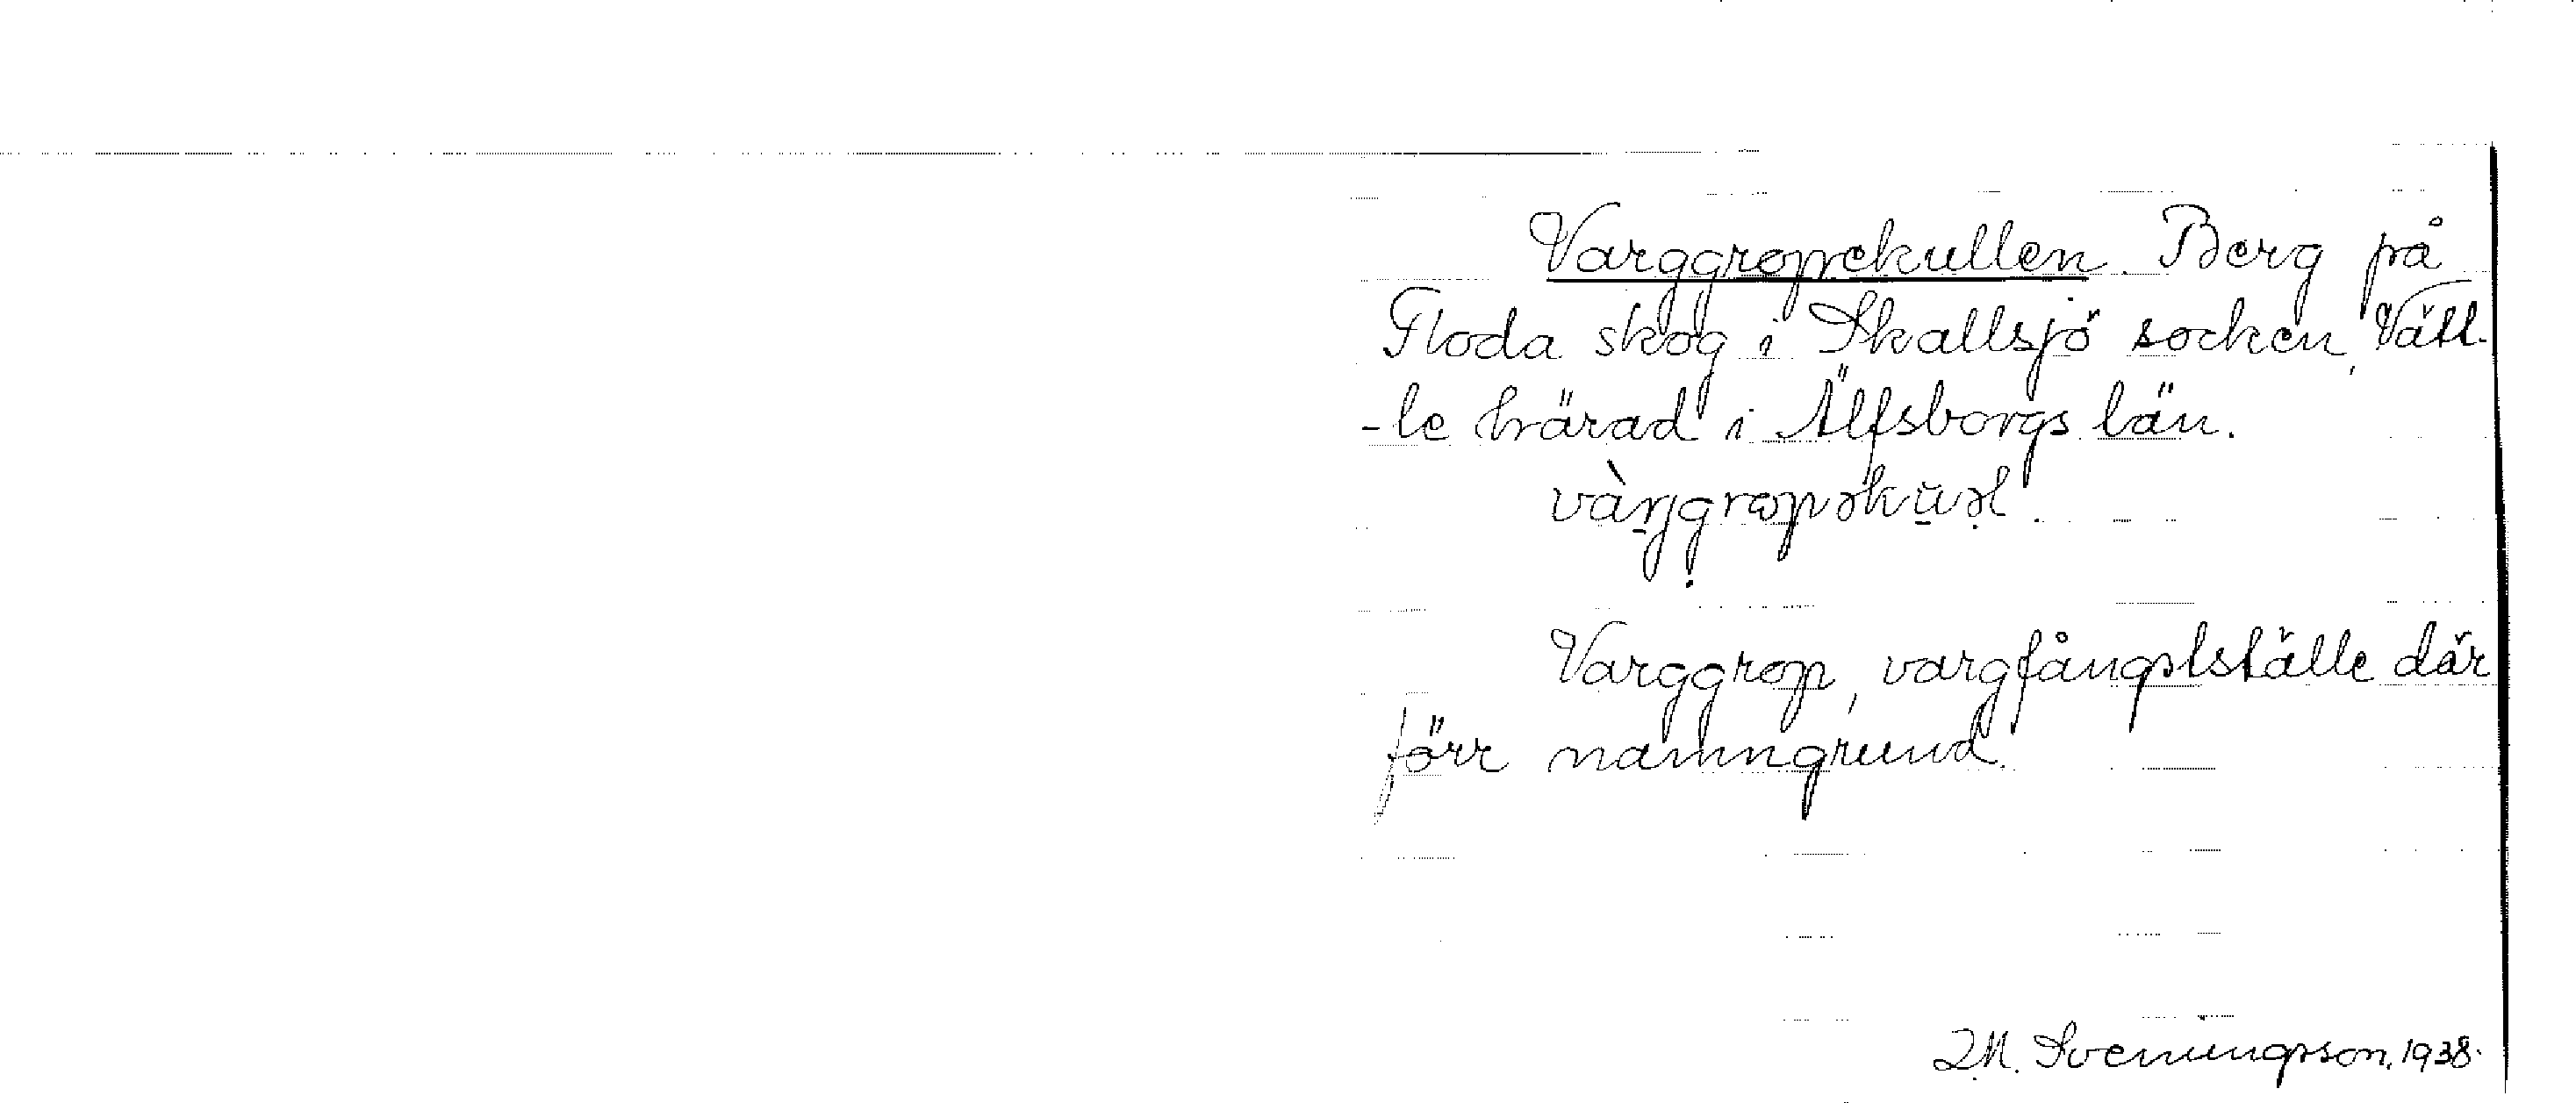 Varggropekullen. Berg på
Floda skog i Skallsjö socken, Vätt-
-le härad i Älfsborgs län.
Varggrop, vargfångstställe där
förr namngrund.
J.M. Svenungsson, 1938.